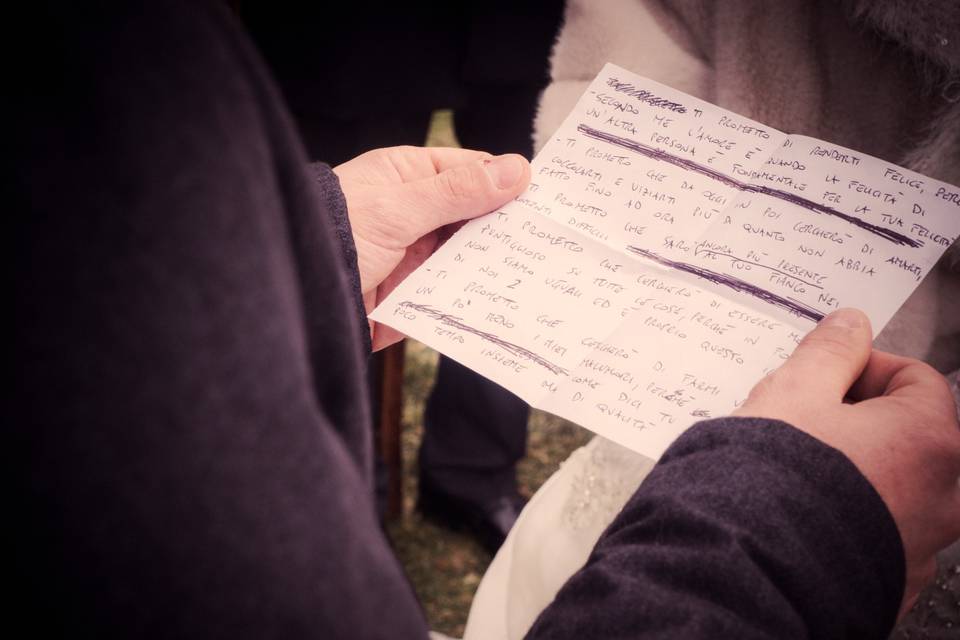 TI PROMETTO DI RENDERTI FELICE, PERC
- SECONDO ME L'AMORE È QUANDO LA FELICITÀ DI
UN'ALTRA PERSONA È FONDAMENTALE PER LA TUA FELICITÀ
- TI PROMETTO CHE DA OGGI IN POI CERCHERÒ DI AMARTI,
COCCOLARTI E VIZIARTI PIÙ DI QUANTO NON ABBIA
FATTO FINO AD ORA
TI PROMETTO CHE SARÒ ANCORA PIÙ PRESENTE
AL TUO FIANCO NEI
MOMENTI DIFFICILI
TI PROMETTO CHE CERCHERÒ DI ESSERE
PUNTIGLIOSO SU TUTTE LE COSE, PERCHÈ IN
NON SIAMO UGUALI ED È PROPRIO QUESTO
DI NOI 2
- TI PROMETTO CHE CERCHERÒ DI FARMI
UN PO' MENO I MIEI MALUMORI, PERCHÈ
COME DICI TU
POCO TEMPO INSIEME MA DI QUALITÀ